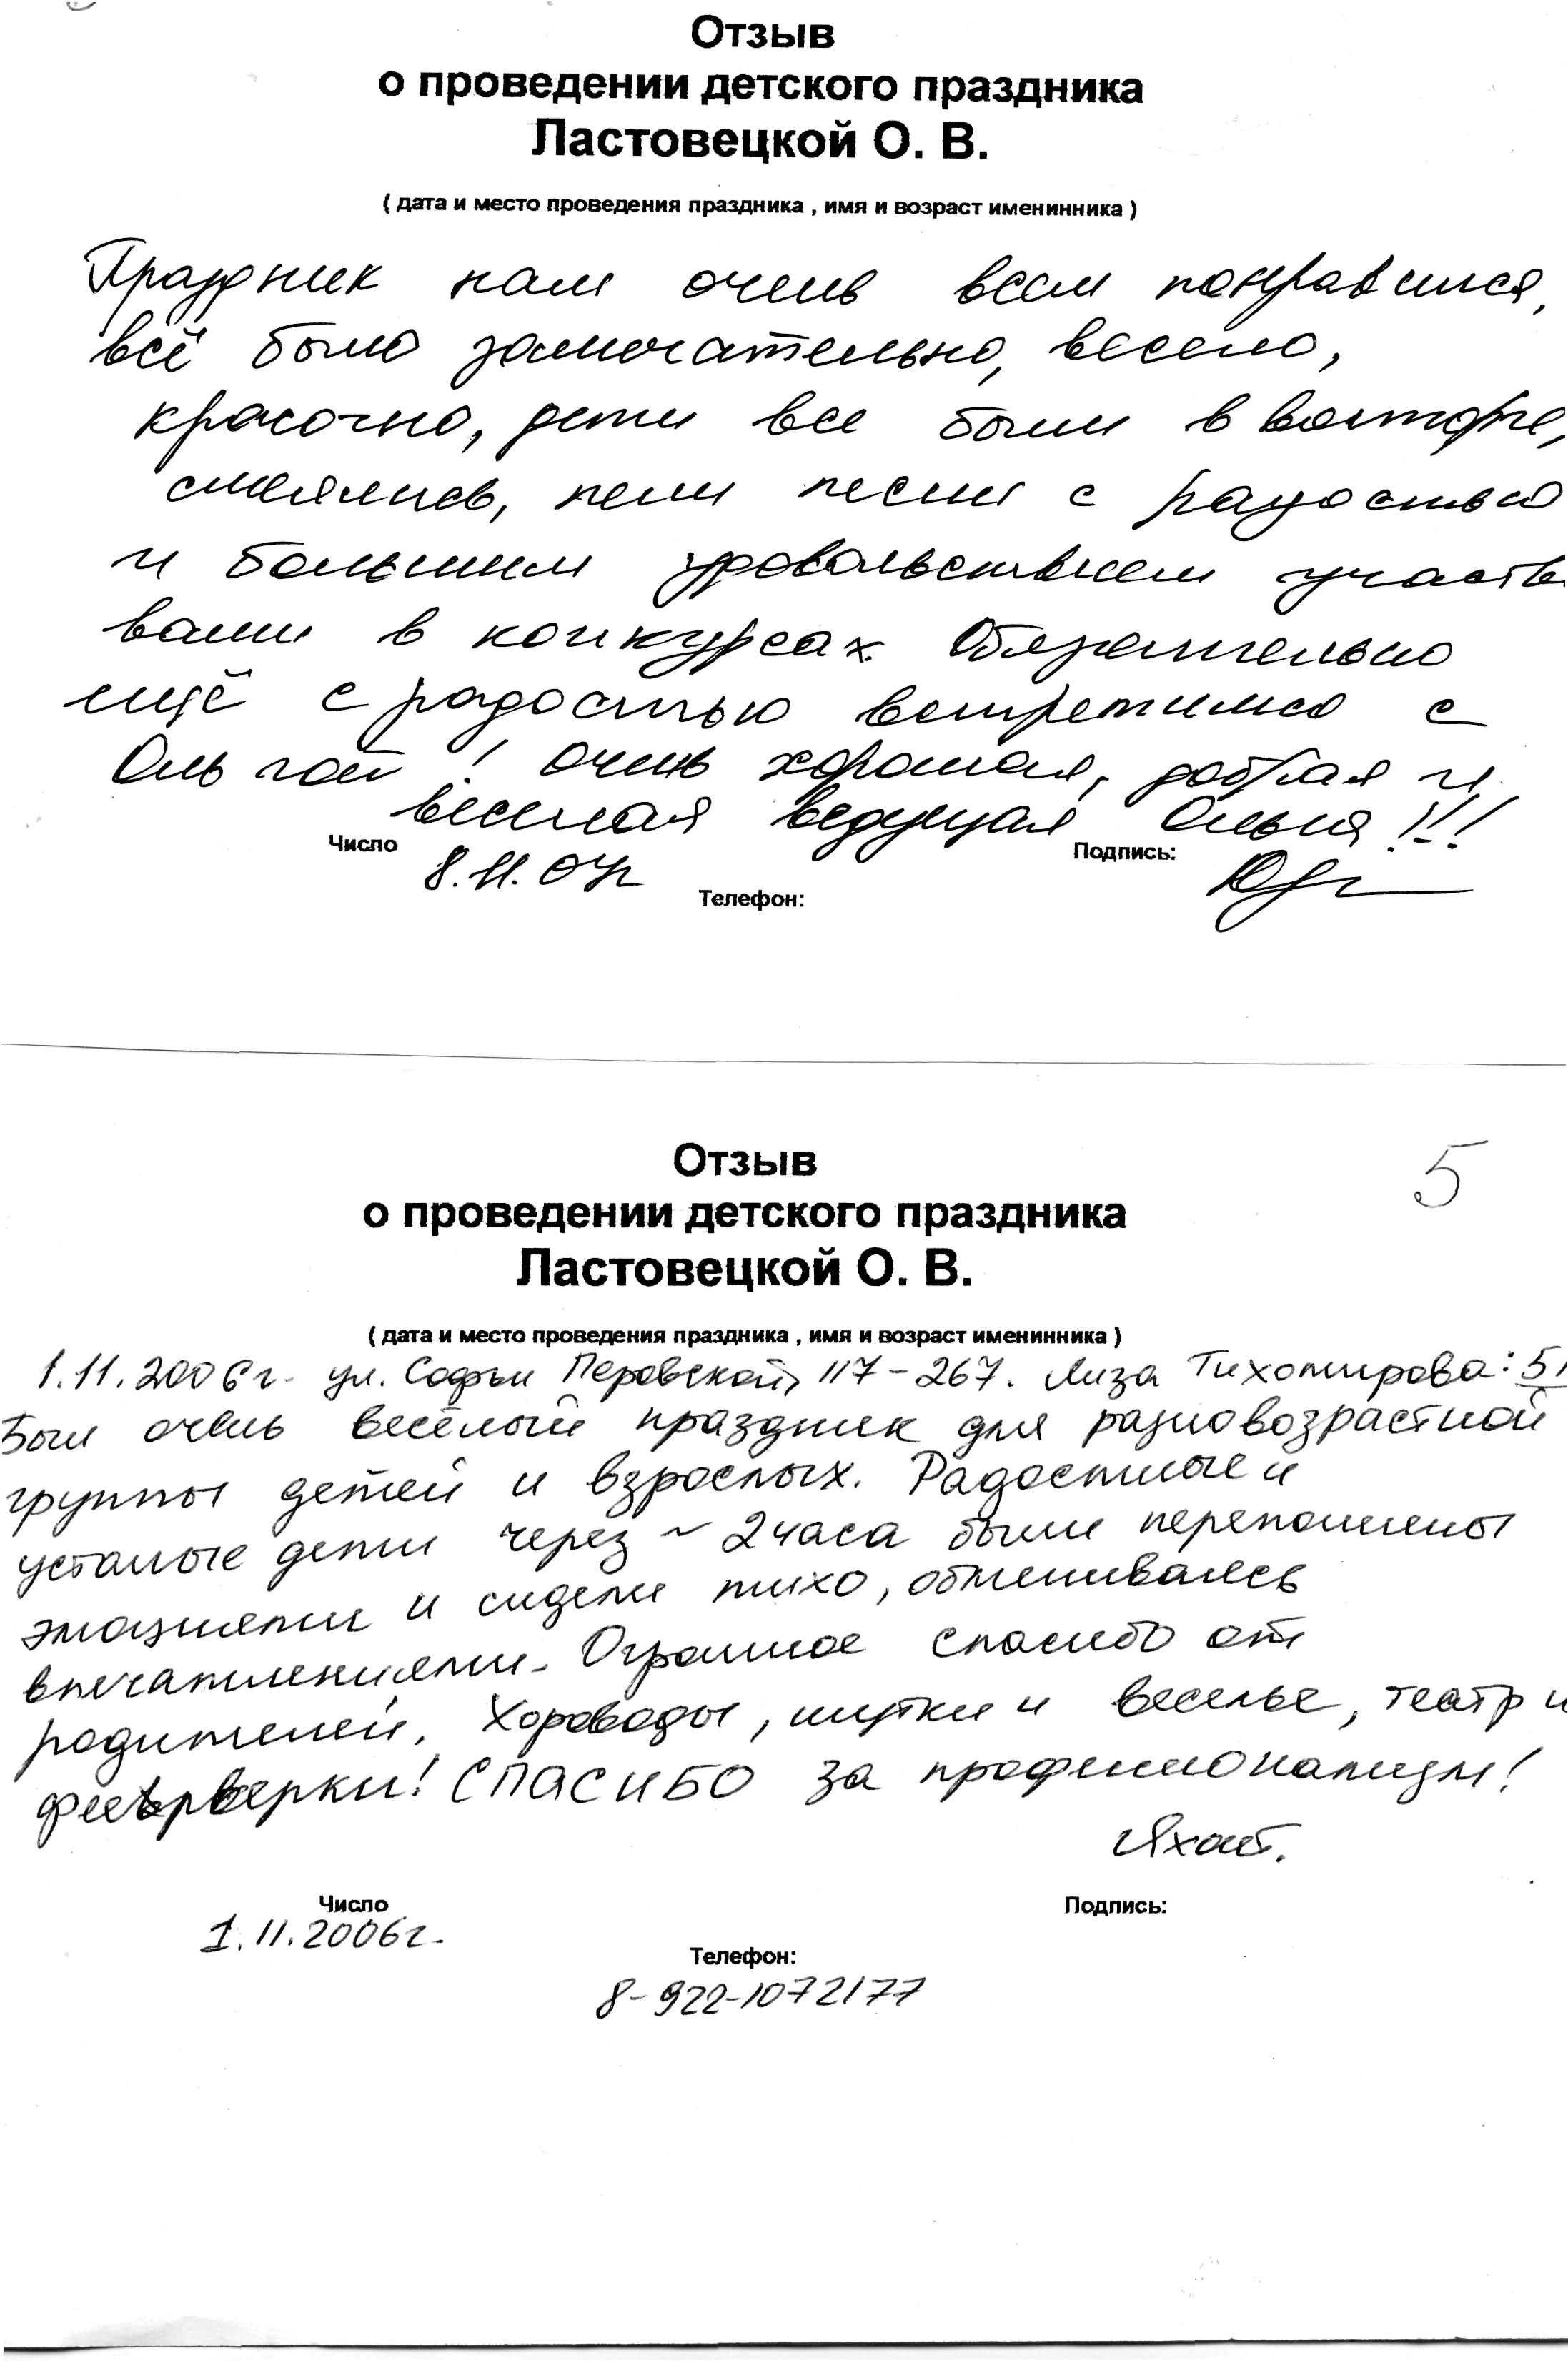 Отзыв
о проведении детского праздника
Ластовецкой О. В.
( дата и место проведения праздника , имя и возраст именинника )
Праздник нам очень всем понравился,
всё было замечательно, весело,
красочно, дети все были в восторге,
смеялись, пели песни с радостью
и большим удовольствием участв
вали в конкурсах. Обязательно
ещё с радостью встретимся с
Ольгой! Очень хорошая, добрая и
веселая ведущая Ольга!!!
Число
Подпись:
8.11.07г
Телефон:
Отзыв
5
о проведении детского праздника
Ластовецкой О. В.
( дата и место проведения праздника , имя и возраст именинника )
1.11.2006г. ул. Софьи Перовской, 117-267. Лиза Тихомирова: 5
Был очень весёлый праздник для разновозрастной
группы детей и взрослых. Радостные и
усталые дети через ~ 2 часа были переполнены
эмоциями и сидели тихо, обмениваясь
впечатлениями. Огромное спасибо от
родителей. Хороводы, шутки и веселье, театр и
фейерверки! СПАСИБО за профессионализм!
Число
Подпись:
1.11.2006г.
Телефон:
8-922-1072177